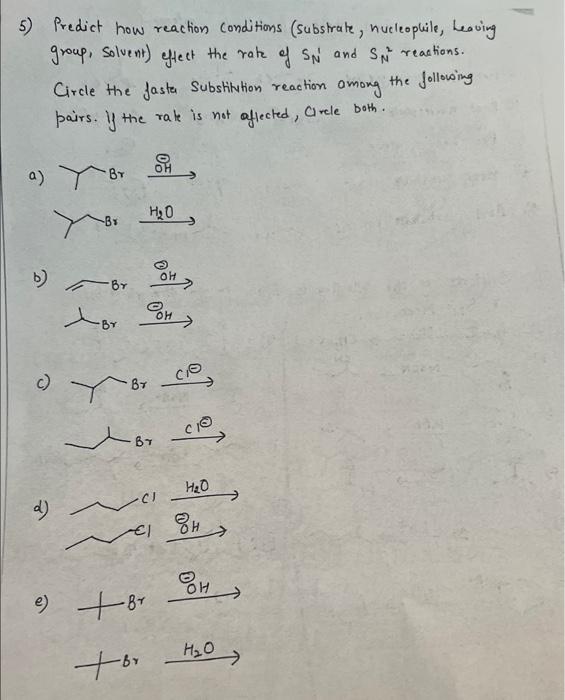 5) Predict how reaction conditions (substrate, nucleophile, Leaving
group, Solvent) effect the rate of SN1 and SN2 reactions.
Circle the faster Substitution reaction among the following
pairs. If the rate is not affected, Circle both.
a) Br ⊖OH
Br H2O
b) Br ⊖OH
Br ⊖OH
c) Br Cl⊖
Br Cl⊖
d) Cl H2O
Cl ⊖OH
e) Br ⊖OH
Br H2O